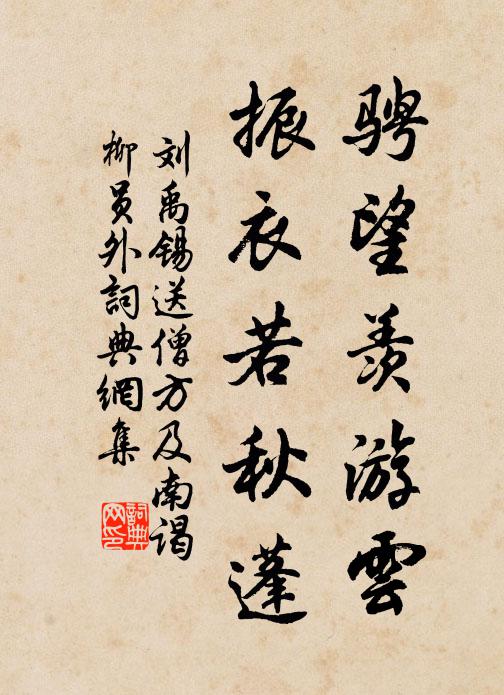 骋望羡游雲
振衣若秋蓬
刘禹锡送僧方及南谒
柳员外詞典網集
詞典网印